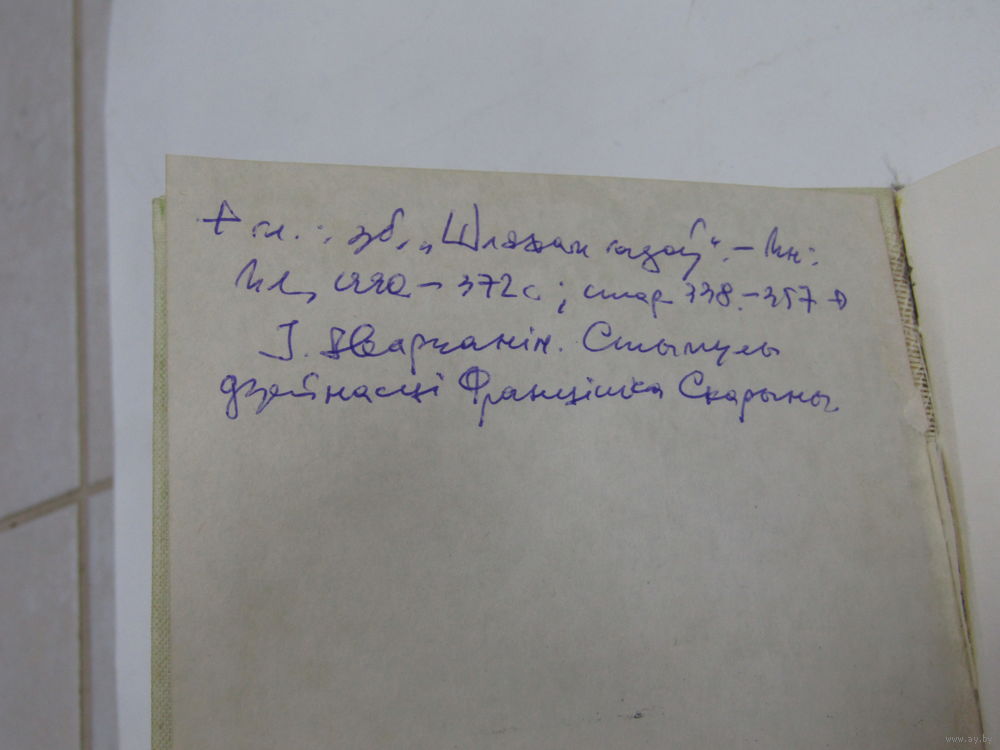 + гл.: зб. „Шляхам гадоў“. – Мн:
МЛ, 1990 – 372с; стар 338. – 357 →
І. Дварчанін. Стымулы
дзейнасці Францішка Скарыны
www.ay.by